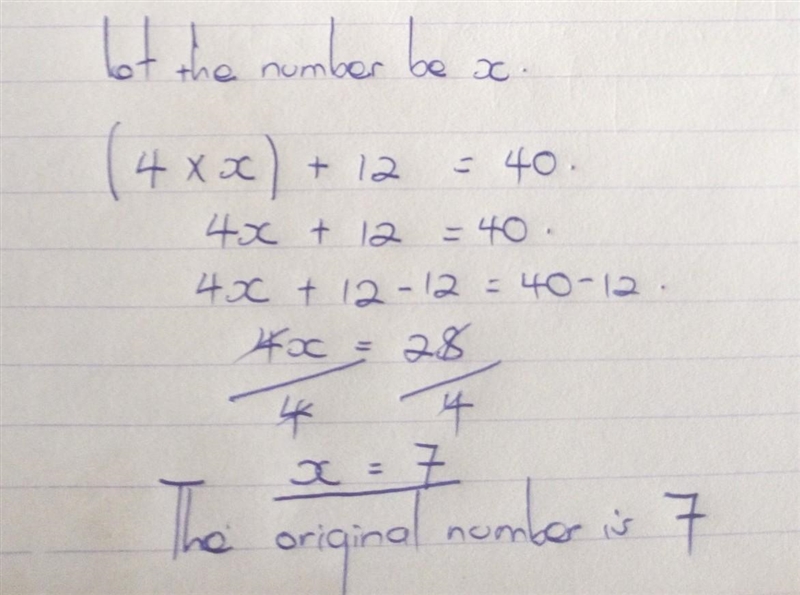 let the number be x.
(4 × x) + 12 = 40.
4x + 12 = 40.
4x + 12 - 12 = 40 - 12.
4x = 28
4 4
x = 7
The original number is 7